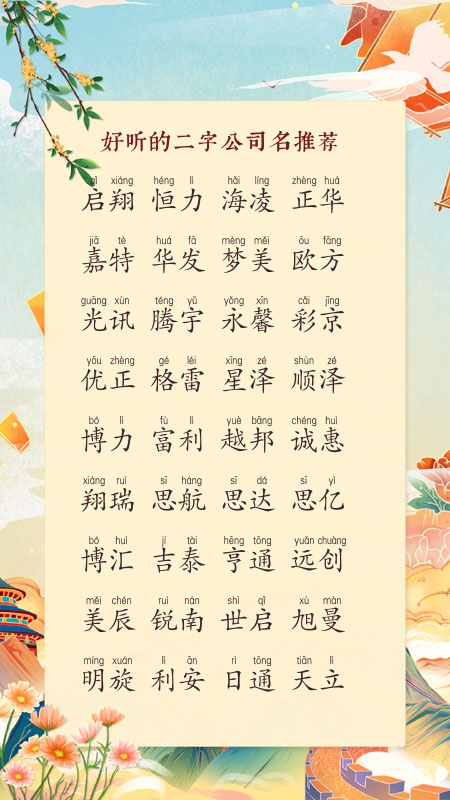 好听的二字公司名推荐
qǐ xiáng héng lì hǎi líng zhèng huá
启翔 恒力 海凌 正华
jiā tè huá fā mèng měi ōu fāng
嘉特 华发 梦美 欧方
guāng xùn téng yǔ yǒng xīn cǎi jīng
光讯 腾宇 永馨 彩京
yōu zhèng gé léi xīng zé shùn zé
优正 格雷 星泽 顺泽
bó lì fù lì yuè bāng chéng huì
博力 富利 越邦 诚惠
xiáng ruì sī háng sī dá sī yì
翔瑞 思航 思达 思亿
bó huì jí tài hēng tōng yuǎn chuàng
博汇 吉泰 亨通 远创
měi chén ruì nán shì qǐ xù màn
美辰 锐南 世启 旭曼
míng xuán lì ān rì tōng tiān lì
明旋 利安 日通 天立